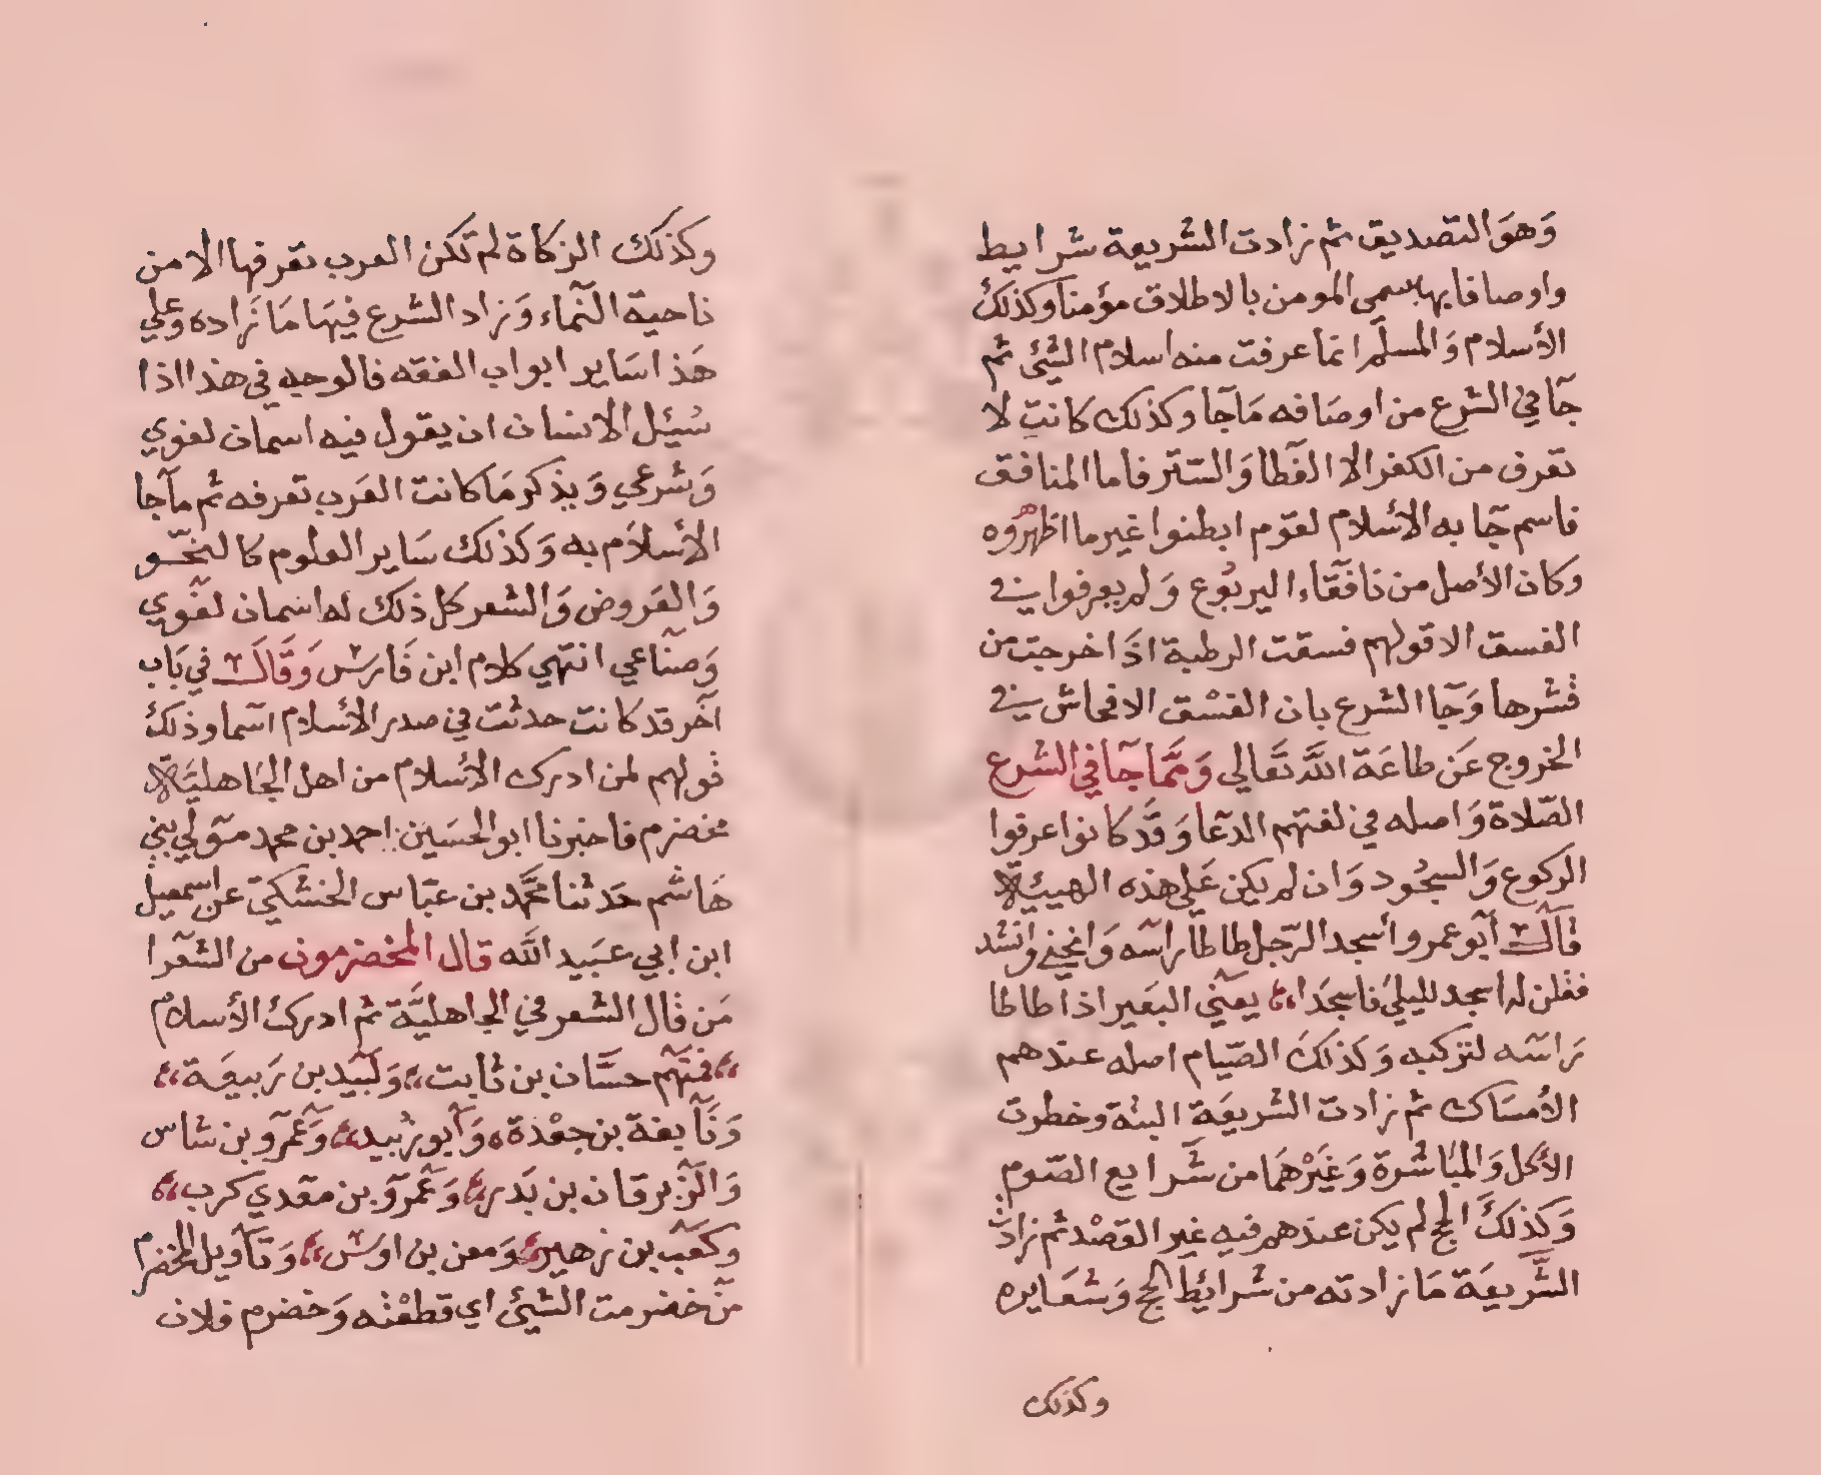 وَهوَ التصديق ثم زادت الشريعة شرايط
واوصافا بها يسمى المومن بالاطلاق مؤمنا وكذلك
الأسلام وَالمسلم انما عرفت منه اسلام الشئ ثم
جآ في الشرع من اوصَافه مَا جآ وكذلك كانت لا
تعرف من الكفر الا الغطا وَالستر فاما المنافق
فاسم جآ به الاسلام لقوم ابطنوا غير ما اظهروه
وكان الأصل من نافقآء اليربُوع وَلم يعرفوا في
الفسق الا قولهم فسقت الرطبة اذَا خرجت من
قشرها وَجآ الشرع بان الفسْق الافحاش في
الخروج عَن طاعَة اللَّه تَعَالي وَممَّا جآ في الشرع
الصّلاة وَاصله في لغتهم الدعا وَقَد كانوا عرفوا
الركوع وَالسجُود وَان لم يكن عَلي هذه الهيئة
قالَ أبو عمرو أسجد الرّجل طاطا راسَه وَانحني وَانشد
فقلن له اسجد لليلي فاسجَدا، يعني البعَير اذا طاطا
رَاسَه لتركبه وَكذلكَ الصّيام اصله عندهم
الأمسَاك ثم زادت الشريعَة النية وحظرت
الأكل وَالمبَاشرة وَغَيْرهَما من شَرايع الصّوم
وَكذلكَ الحج لم يكن عندهم فيه غير القصْد ثم زادت
الشَّريعَة مَا زادته من شرائِط الحج وَشعَايره
وكذلك
وكذلك الزكاة لم تكن العرب تعرفها الا من
ناحية النّماء وَزاد الشرع فيهَا مَا زَاده وَعلي
هَذا سَاير ابواب الفقه فالوجه في هذا اذا
سُئِل الانسان ان يقول فيه اسمان لغوي
وَشرعي وَيذكر مَا كانت العَرب تعرفه ثم مآ جا
الأسلاَم به وَكذلك سَاير العلوم كالنحّو
وَالعَروض وَالشعر كل ذلك له اسمان لغَوي
وَصنَاعي انتهي كلام ابن فَارسَ وَقَالَ في بَاب
آخَر قد كانت حدثت في صدر الأسلام اسما وذلك
قولهم لمن ادرك الأسلام من اهل الجَاهليَّة
مخضرم فاخبرنا ابو الحسَين احمد بن محمد مَولي بني
هَاشم حَدثنا محَّمد بن عبّاس الخشكيّ عن اسمعيل
ابن ابي عبَيد اللَّه قال المخضرمون من الشعرا
مَن قال الشعر في الجاهليَّة ثم ادركَ الأسلام
فمنهم حسَّان بن ثابت، وَلَبيد بن رَبيعَة،
وَنَابغة بن جعْدة، وَأبو زُبيد، وَعَمرو بن شاس
وَالزّبرقان بن بَدر، وَعَمرو بن معَدي كرب،
وكعَب بن زهير، وَمعن بن اوسَ، وَتآويل المخضرم
من خضرمت الشيئ اي قطعْتُه وَخضرم فلان